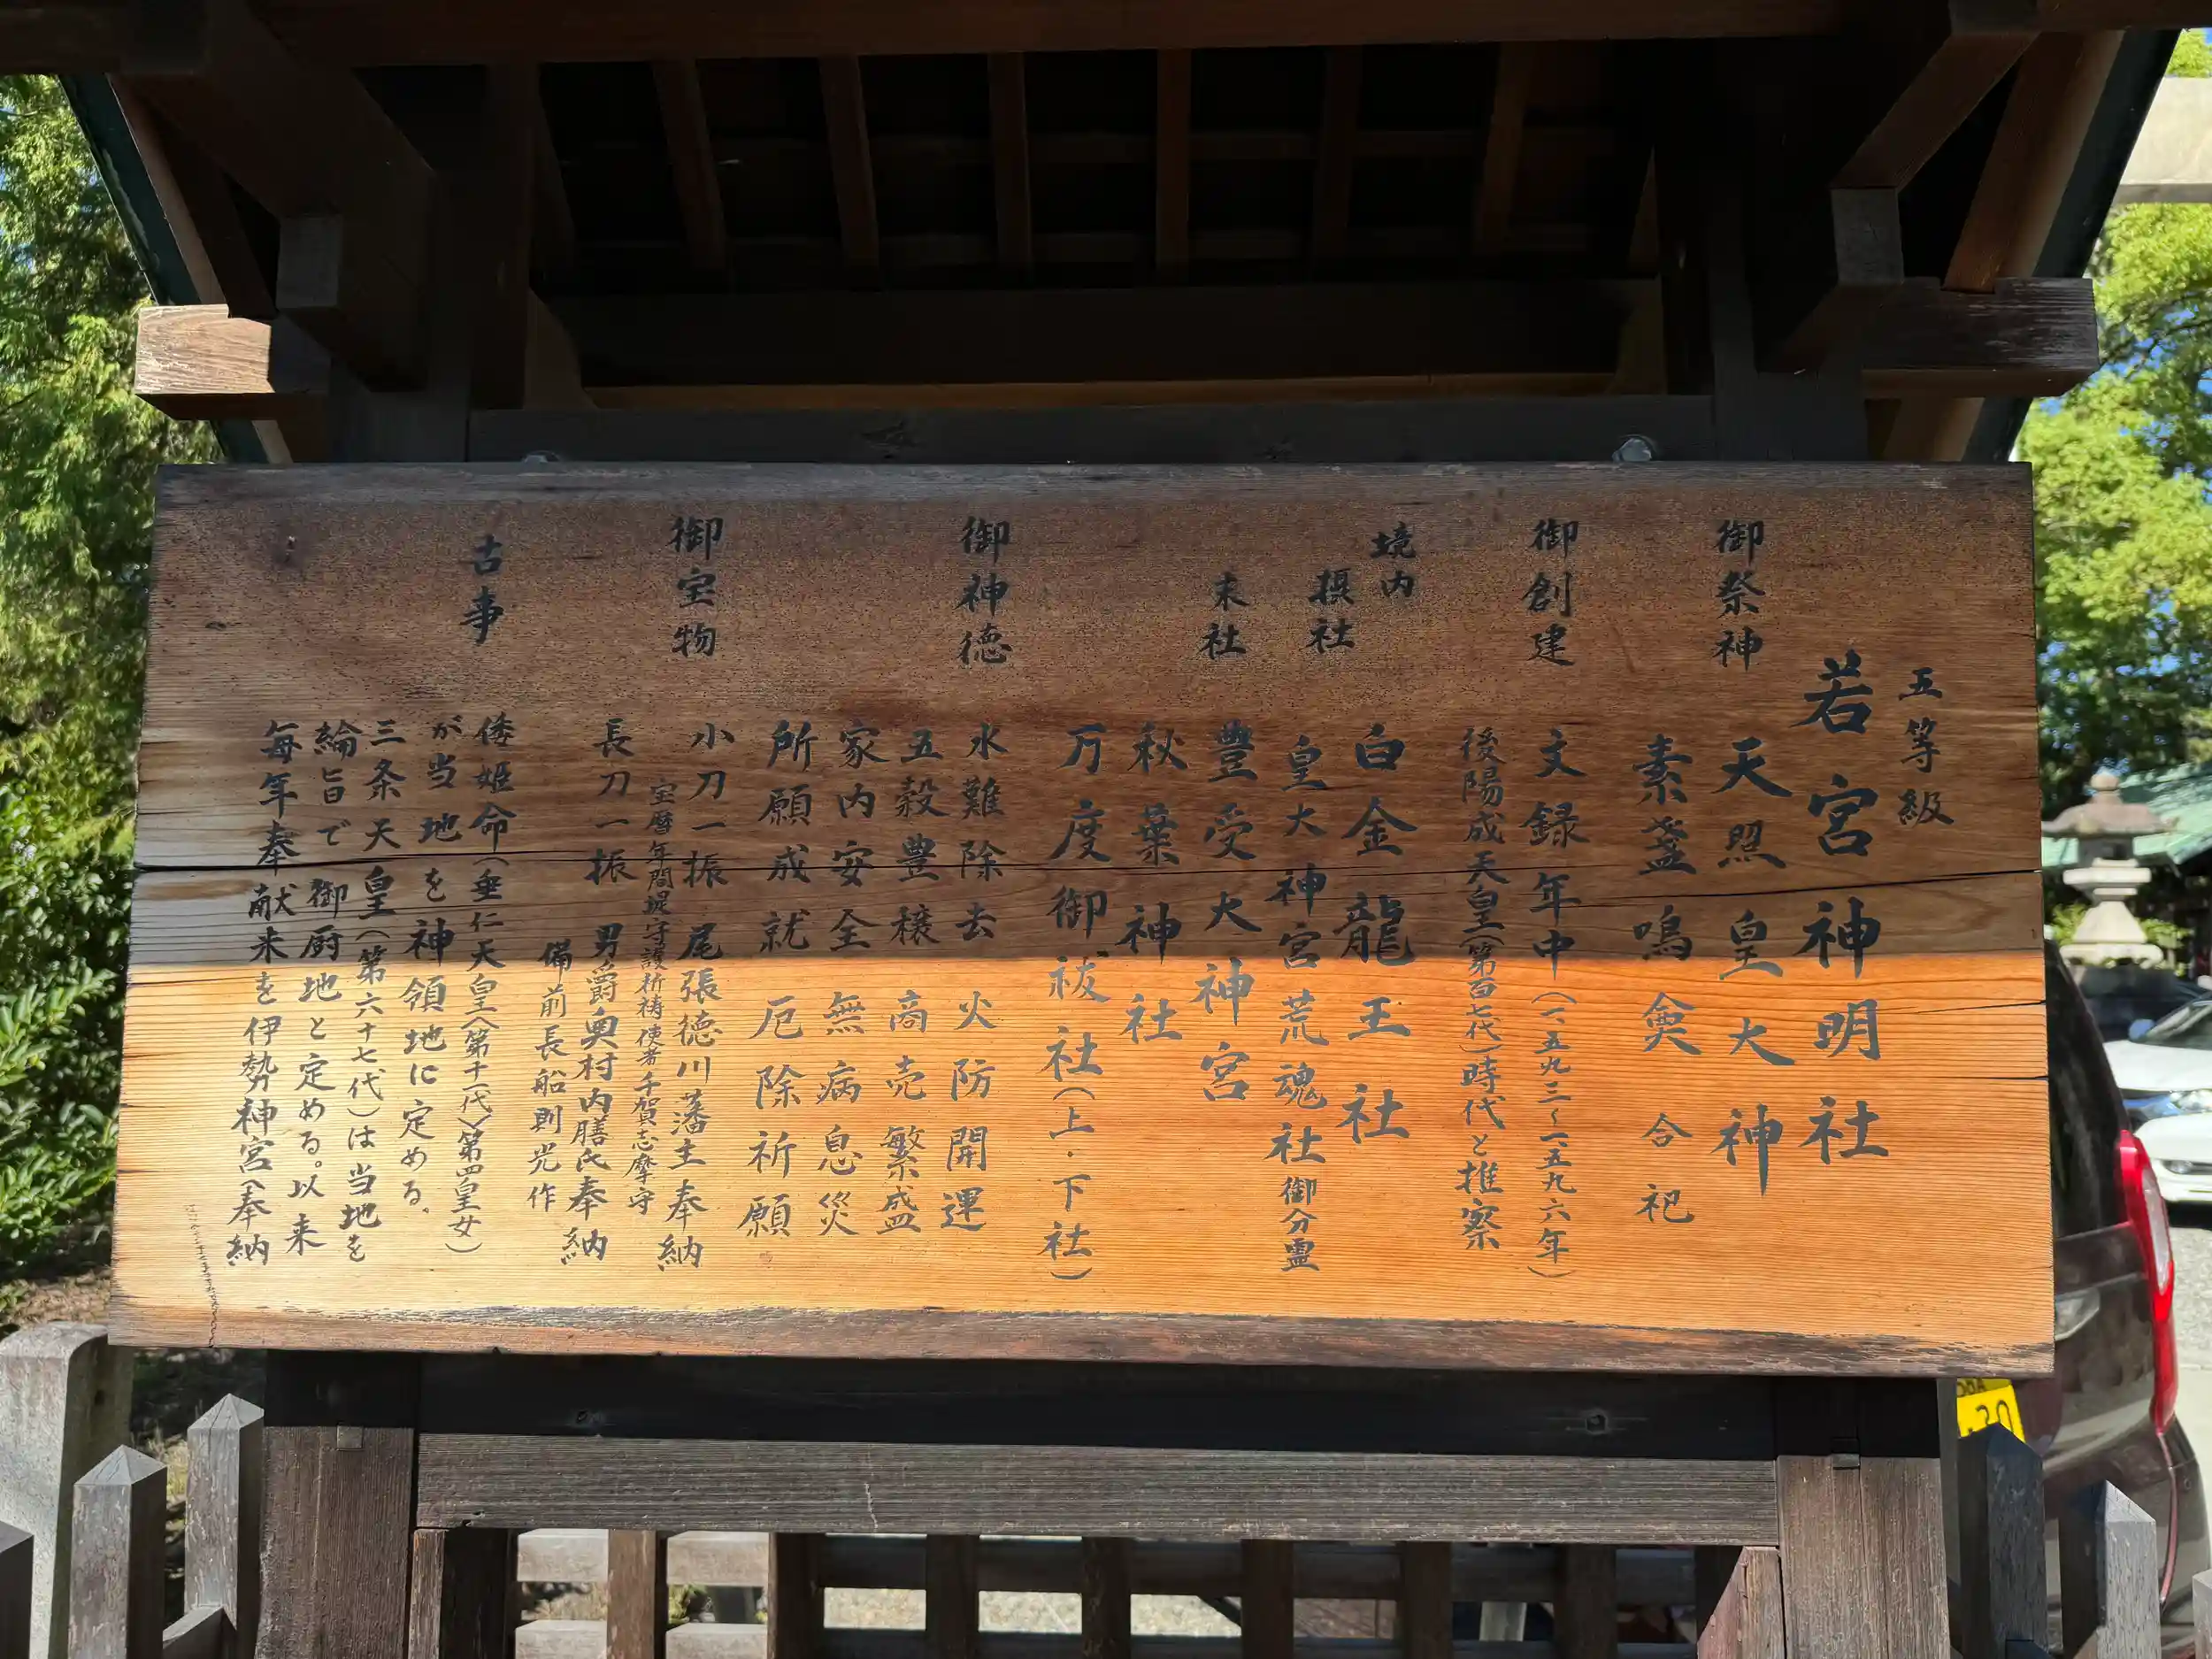 五等級
若宮神明社
御祭神
天照皇大神
素盞嗚尊 合祀
御創建
文録年中（一五九三〜一五九六年）
後陽成天皇（第百七代）時代と推察
境内
摂社
白金龍王社
皇大神宮荒魂社御分霊
末社
豊受大神宮
秋葉神社
万度御祓社（上・下社）
御神徳
水難除去 火防開運
五穀豊穣 商売繁盛
家内安全 無病息災
所願成就 厄除祈願
御宝物
小刀一振 尾張徳川藩主奉納
宝暦年間堤守護祈祷使者千賀志摩守
長刀一振 男爵奥村内膳氏奉納
備前長船則光作
古事
倭姫命（垂仁天皇（第十一代）第四皇女）
が当地を神領地に定める。
三条天皇（第六十七代）は当地を
綸旨で御厨地と定める。以来
毎年奉献米を伊勢神宮へ奉納